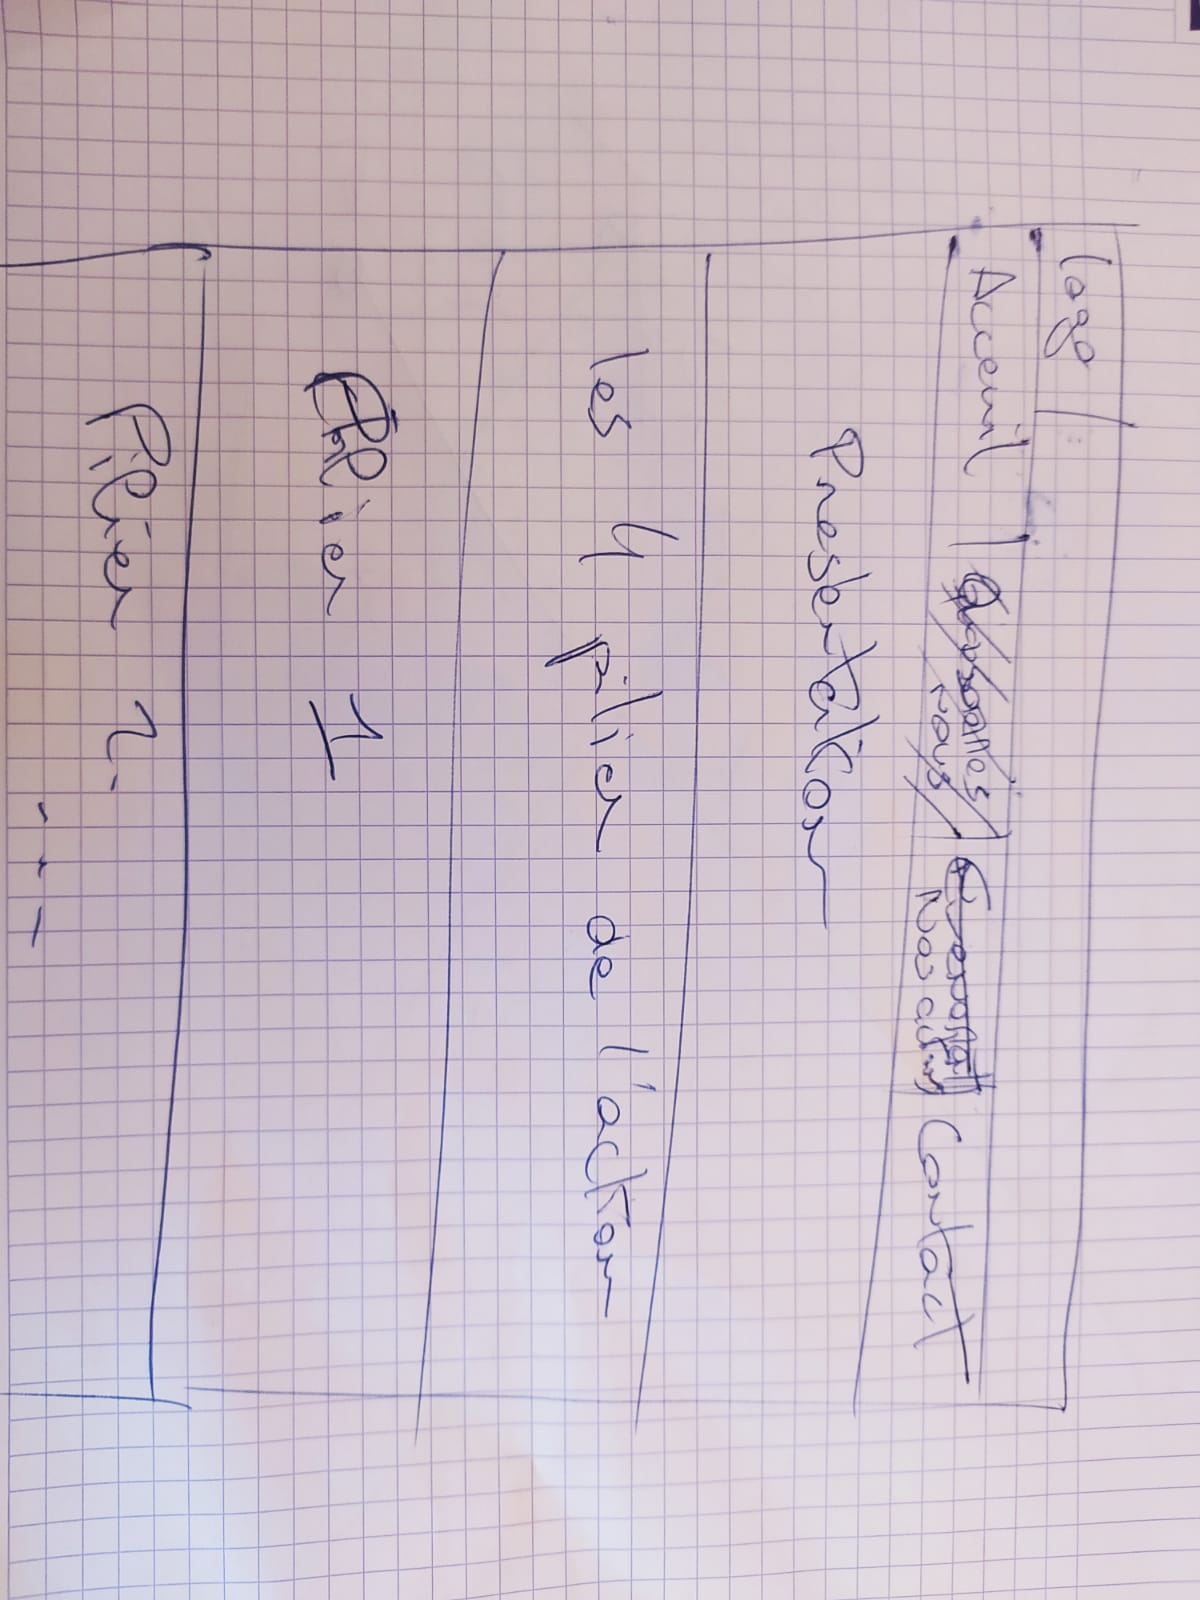 logo
Acceuil
Qui sommes nous
Evenement
Nos actions
Contact
Presentation
les 4 pilier de l'action
Pilier 1
Pilier 2.
---